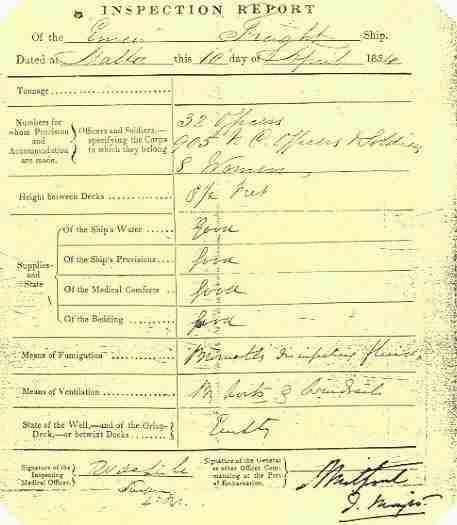 INSPECTION REPORT
Of the Emeu Freight Ship.
Dated at Malta this 10 day of April 1854
Tonnage
Numbers for whom Provision and Accommodation are made. Officers and Soldiers,— specifying the Corps to which they belong
32 Officers
905 N. C. Officers & Soldiers
8 Women
Height between Decks Feet
Supplies and State
Of the Ship's Water Good
Of the Ship's Provisions Good
Of the Medical Comforts Good
Of the Bedding Good
Means of Fumigation Burnett's fluid
Means of Ventilation Ports & Windsail
State of the Well,—and of the Orlop-Deck,—or betwixt Decks
Signature of the Inspecting Medical Officer.
Signature of the General or other Officer Commanding at the Port of Embarcation.